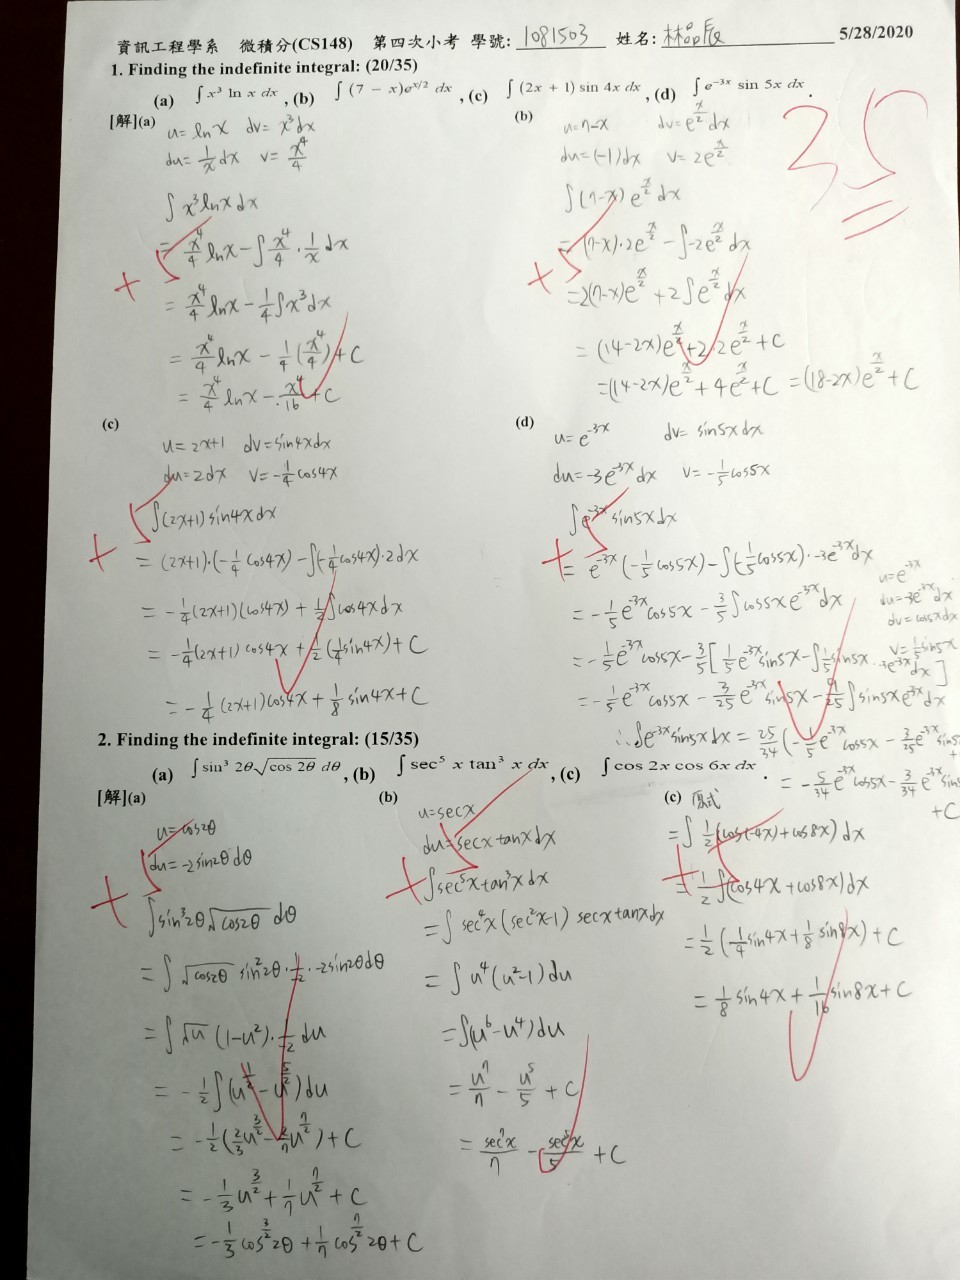 資訊工程學系 微積分(CS148) 第四次小考 學號: 1081503 姓名: 林 5/28/2020
1. Finding the indefinite integral: (20/35)
(a) ∫ x³ ln x dx , (b) ∫ (7 − x)e^(x/2) dx , (c) ∫ (2x + 1) sin 4x dx , (d) ∫ e^(−3x) sin 5x dx .
35
[解](a)
u = lnx dv = x³dx
du = 1/x dx v = x⁴/4
∫ x³ lnx dx
= x⁴/4 lnx − ∫ x⁴/4 · 1/x dx
+5
= x⁴/4 lnx − 1/4 ∫ x³dx
= x⁴/4 lnx − 1/4 (x⁴/4) + C
= x⁴/4 lnx − x⁴/16 + C
(b)
u = 7−x dv = e^(x/2) dx
du = (−1)dx v = 2e^(x/2)
∫ (7−x) e^(x/2) dx
= (7−x)·2e^(x/2) − ∫ −2e^(x/2) dx
+5
= 2(7−x)e^(x/2) + 2∫ e^(x/2) dx
= (14−2x)e^(x/2) + 2·2e^(x/2) + C
= (14−2x)e^(x/2) + 4e^(x/2) + C = (18−2x)e^(x/2) + C
(c)
u = 2x+1 dv = sin4xdx
du = 2dx v = −1/4 cos4x
∫ (2x+1) sin4xdx
+5
= (2x+1)·(−1/4 cos4x) − ∫(−1/4 cos4x)·2dx
= −1/4(2x+1)(cos4x) + 1/2 ∫ cos4xdx
= −1/4(2x+1) cos4x + 1/2 (1/4 sin4x) + C
= −1/4 (2x+1)cos4x + 1/8 sin4x + C
(d)
u = e^(−3x) dv = sin5xdx
du = −3e^(−3x)dx v = −1/5 cos5x
∫ e^(−3x) sin5xdx
+5
= e^(−3x) (−1/5 cos5x) − ∫(−1/5 cos5x)·−3e^(−3x)dx
u = e^(−3x)
du = −3e^(−3x)dx
dv = cos5xdx
v = 1/5 sin5x
= −1/5 e^(−3x) cos5x − 3/5 ∫ cos5x e^(−3x)dx
= −1/5 e^(−3x) cos5x − 3/5 [ 1/5 e^(−3x) sin5x − ∫ 1/5 sin5x · −3e^(−3x)dx ]
= −1/5 e^(−3x) cos5x − 3/25 e^(−3x) sin5x − 9/25 ∫ sin5x e^(−3x)dx
∴ ∫ e^(−3x) sin5xdx = 25/34 (−1/5 e^(−3x) cos5x − 3/25 e^(−3x) sin5
= −5/34 e^(−3x) cos5x − 3/34 e^(−3x) sin
+C
2. Finding the indefinite integral: (15/35)
(a) ∫ sin³ 2θ √(cos 2θ) dθ , (b) ∫ sec⁵ x tan³ x dx , (c) ∫ cos 2x cos 6x dx .
[解](a)
u = cos2θ
du = −2sin2θdθ
+5
∫ sin³2θ √(cos2θ) dθ
= ∫ √(cos2θ) sin²2θ · 1/−2 · −2sin2θdθ
= ∫ √u (1−u²) · 1/−2 du
= −1/2 ∫ (u^(1/2) − u^(5/2)) du
= −1/2 (2/3 u^(3/2) − 2/7 u^(7/2)) + C
= −1/3 u^(3/2) + 1/7 u^(7/2) + C
= −1/3 cos^(3/2) 2θ + 1/7 cos^(7/2) 2θ + C
(b)
u = secx
du = secx tanxdx
+5
∫ sec⁵x tan³x dx
= ∫ sec⁴x (sec²x−1) secx tanxdx
= ∫ u⁴ (u²−1) du
= ∫(u⁶ − u⁴) du
= u⁷/7 − u⁵/5 + C
= sec⁷x/7 − sec⁵x/5 + C
(c) 原式
= ∫ 1/2 (cos(−4x) + cos8x) dx
+5
= 1/2 ∫ (cos4x + cos8x) dx
= 1/2 (1/4 sin4x + 1/8 sin8x) + C
= 1/8 sin4x + 1/16 sin8x + C